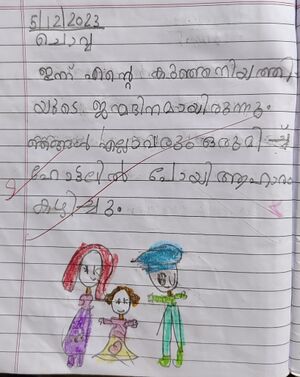 5/12/2023
ചൊവ്വ
ഇന്ന് എന്റെ കുഞ്ഞനിയത്തി
യുടെ ജന്മദിനമായിരുന്നു.
ഞങ്ങൾ എല്ലാവരും ഒരുമിച്ച്
ഹോട്ടലിൽ പോയി ആഹാരം
കഴിച്ചു.